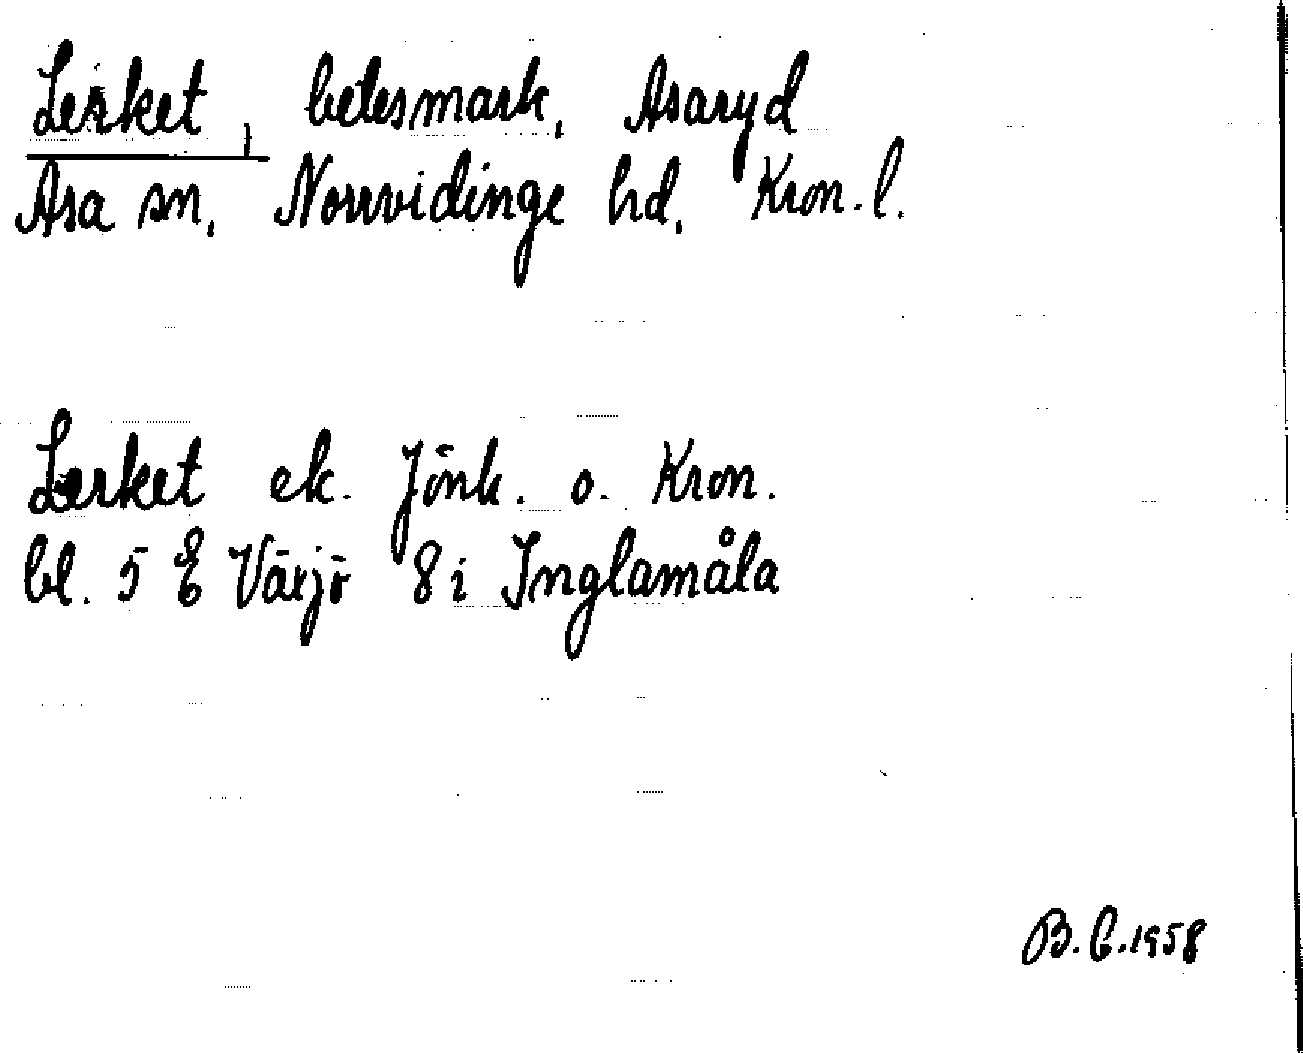 Lerket, betesmark, Asaryd
Asa sn, Norrvidinge hd, Kron. l.
Lerket ek. Jönk. o. Kron.
bl. 5 E Växjö 8 i Inglamåla
B.E. 1958